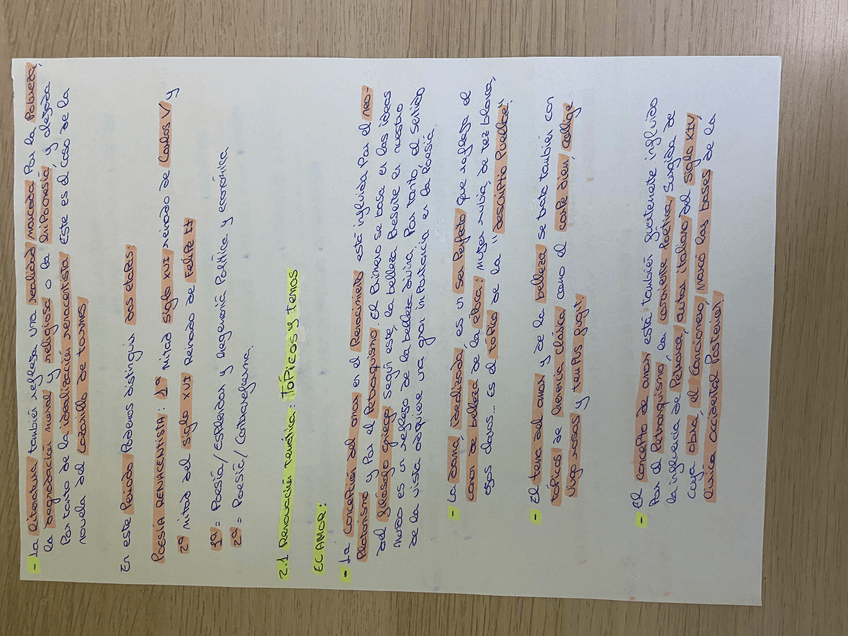 - La literatura también refleja una realidad marcada por la pobreza,
la degradación moral y religiosa o la hipocresía, y alejada
por tanto de la idealización renacentista. Este es el caso de la
novela del Lazarillo de Tormes.
En este periodo podemos distinguir dos etapas:
POESÍA RENACENTISTA: 1ª mitad siglo XVI reinado de Carlos V y
2ª mitad del siglo XVI Reinado de Felipe II
1ª = Poesía / Esplendor y hegemonía política y económica
2ª = Poesía / Contrarreforma.
2.1 Renovación temática: Tópicos y temas
EL AMOR:
- La concepción del amor en el Renacimiento está influida por el neo-
platonismo y por el petrarquismo. El primero se basa en las ideas
del filósofo griego según este, la belleza presente en nuestro
mundo es un reflejo de la belleza divina. Por tanto, el sentido
de la vista adquiere una gran importancia en la poesía.
- La dama idealizada es un ser perfecto que refleja el
canon de belleza de la época: mujer rubia, de tez blanca,
ojos claros... Es el tópico de la "descriptio puellae".
- El tema del amor y de la belleza se trata también con
tópicos de herencia clásica como el carpe diem, collige
virgo rosas y tempus fugit.
- El concepto de amor está también sustancialmente influido
por el petrarquismo, la corriente poética surgida de
la influencia de Petrarca, autor italiano del siglo XIV
cuya obra, el cancionero, marcó las bases de la
lírica occidental posterior.